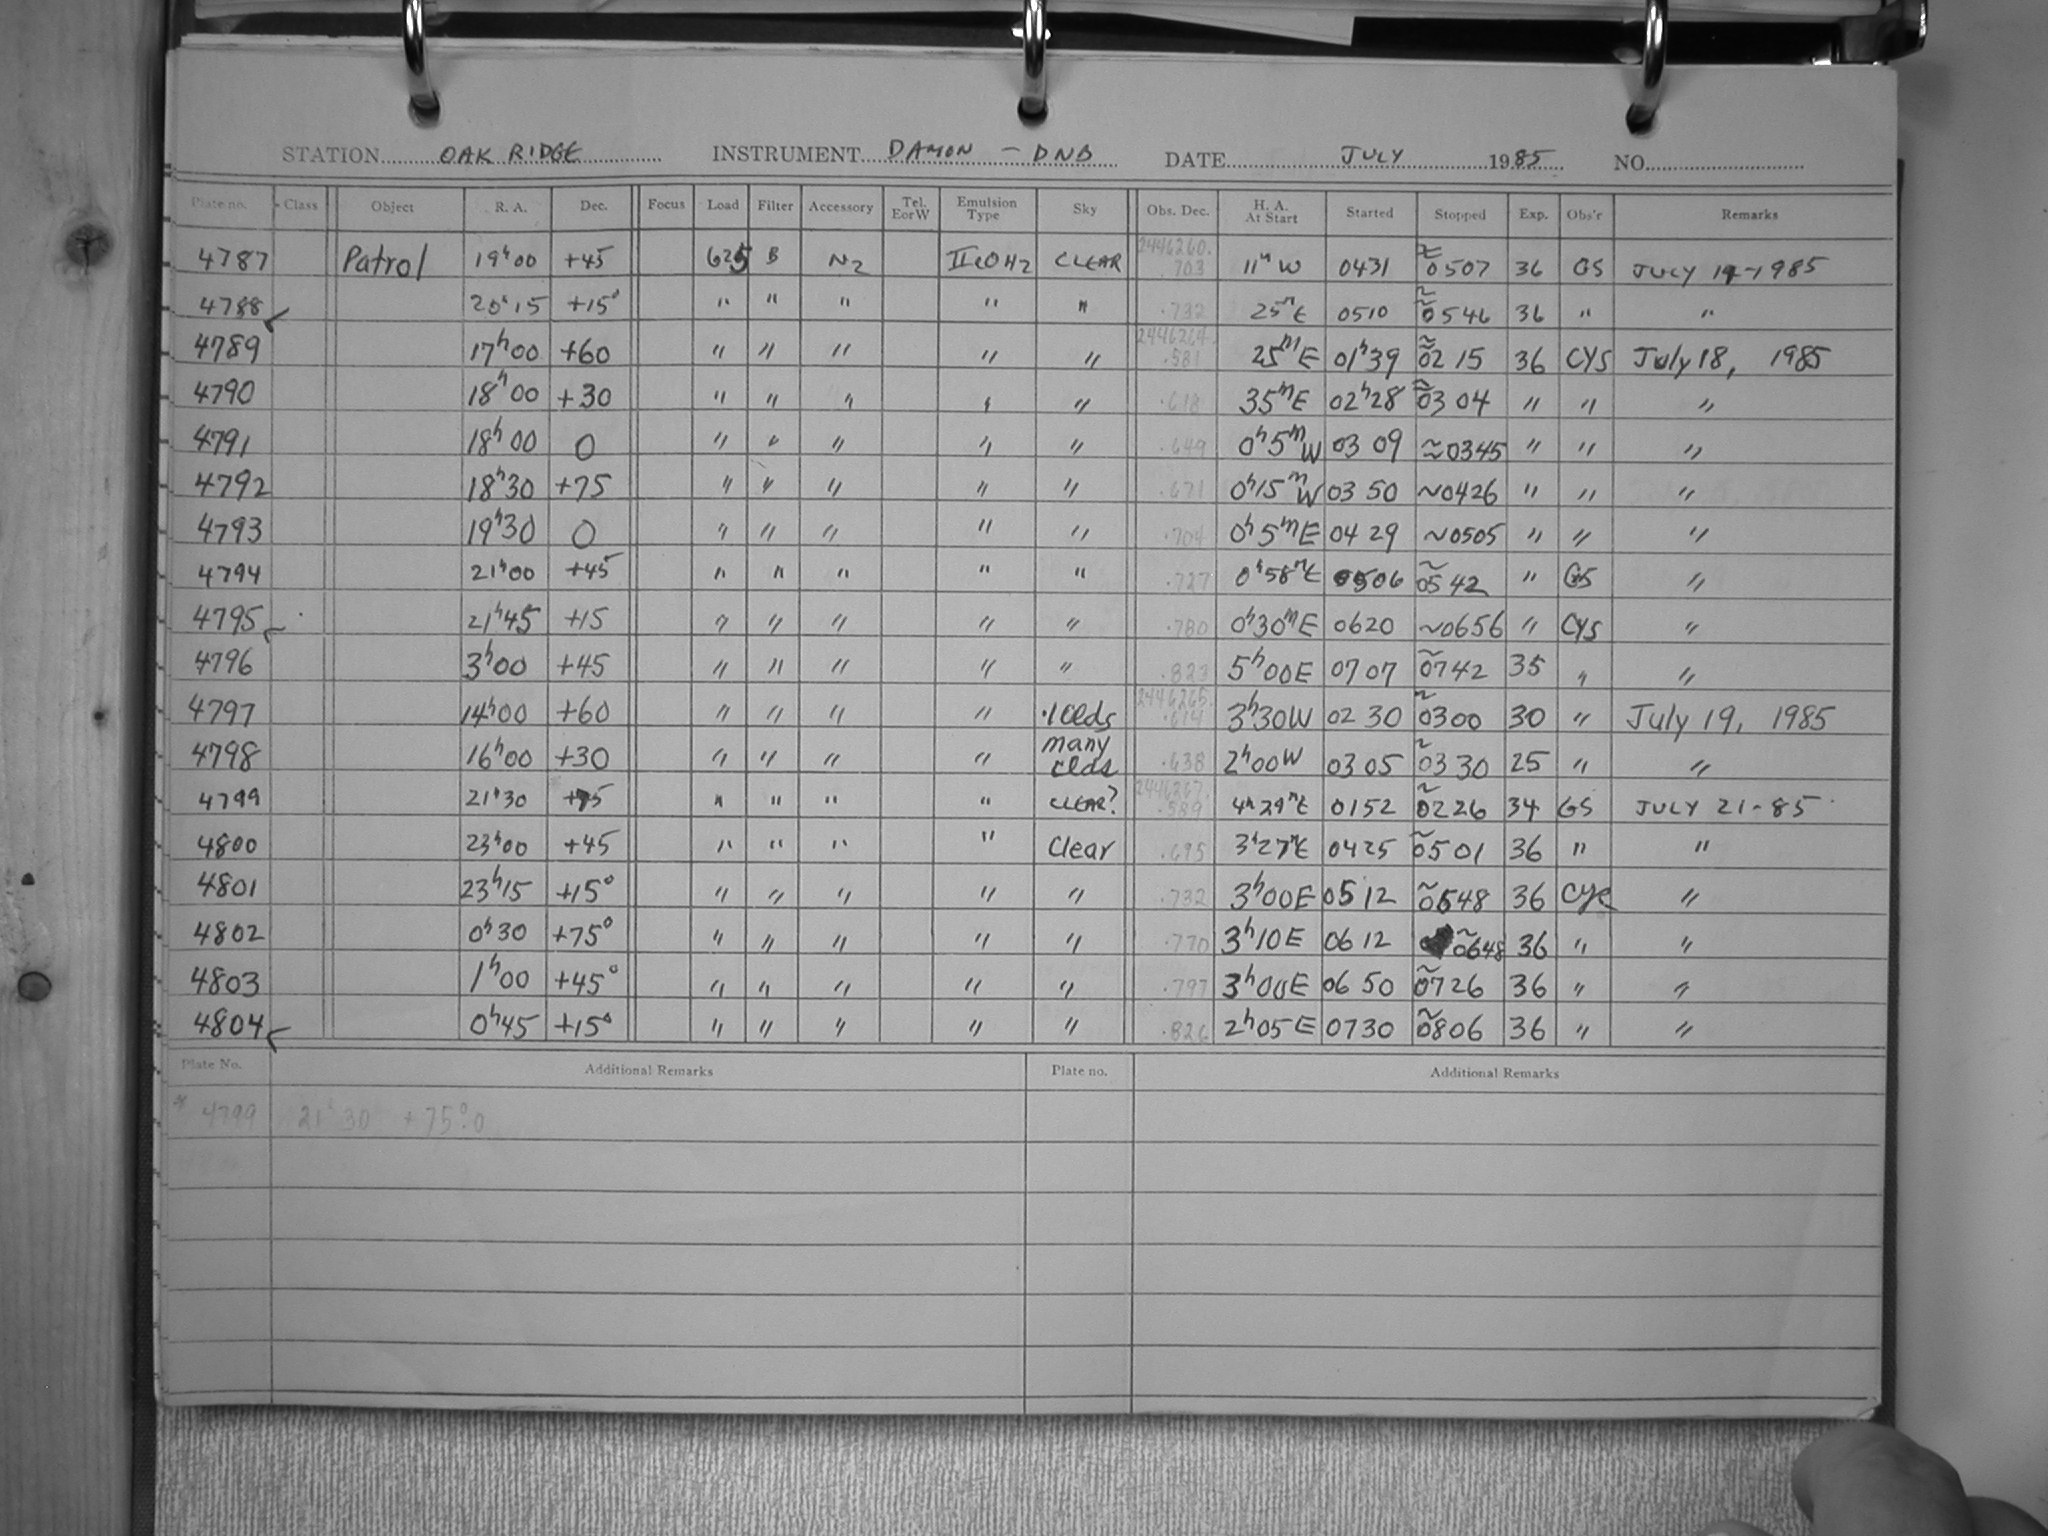 STATION OAK RIDGE INSTRUMENT DAMON – DNB DATE JULY 1985 NO.
Plate no. Class Object R. A. Dec. Focus Load Filter Accessory Tel. E or W Emulsion Type Sky Obs. Dec. H. A. At Start Started Stopped Exp. Obs'r Remarks
4787 Patrol 19h00 +45 625 B N2 IIaOH2 CLEAR 2446260.703 11m W 0431 ~0507 36 GS JULY 14-1985
4788 20h15 +15° " " " " " .732 25mE 0510 ~0546 36 " "
4789 17h00 +60 " " " " " 2446264.581 25mE 01h39 ~0215 36 CYS July 18, 1985
4790 18h00 +30 " " " " " .618 35mE 02h28 ~0304 " " "
4791 18h00 0 " " " " " .649 0h5mW 0309 ~0345 " " "
4792 18h30 +75 " " " " " .671 0h15mW 0350 ~0426 " " "
4793 19h30 0 " " " " " .704 0h5mE 0429 ~0505 " " "
4794 21h00 +45 " " " " " .727 0h58mE 0506 ~0542 " GS "
4795 21h45 +15 " " " " " .780 0h30mE 0620 ~0656 " CYS "
4796 3h00 +45 " " " " " .823 5h00E 0707 ~0742 35 " "
4797 14h00 +60 " " " " .1 clds 2446265.614 3h30W 0230 ~0300 30 " July 19, 1985
4798 16h00 +30 " " " " many clds .638 2h00W 0305 ~0330 25 " "
4799 21h30 +75 " " " " CLEAR? 2446267.589 4h29mE 0152 ~0226 34 GS JULY 21-85
4800 23h00 +45 " " " " Clear .695 3h27mE 0425 ~0501 36 " "
4801 23h15 +15° " " " " " .732 3h00E 0512 ~0548 36 CYS "
4802 0h30 +75° " " " " " .770 3h10E 0612 ~0648 36 " "
4803 1h00 +45° " " " " " .797 3h00E 0650 ~0726 36 " "
4804 0h45 +15° " " " " " .826 2h05E 0730 ~0806 36 " "
Plate No. Additional Remarks Plate no. Additional Remarks
* 4799 21h30 +75°.0